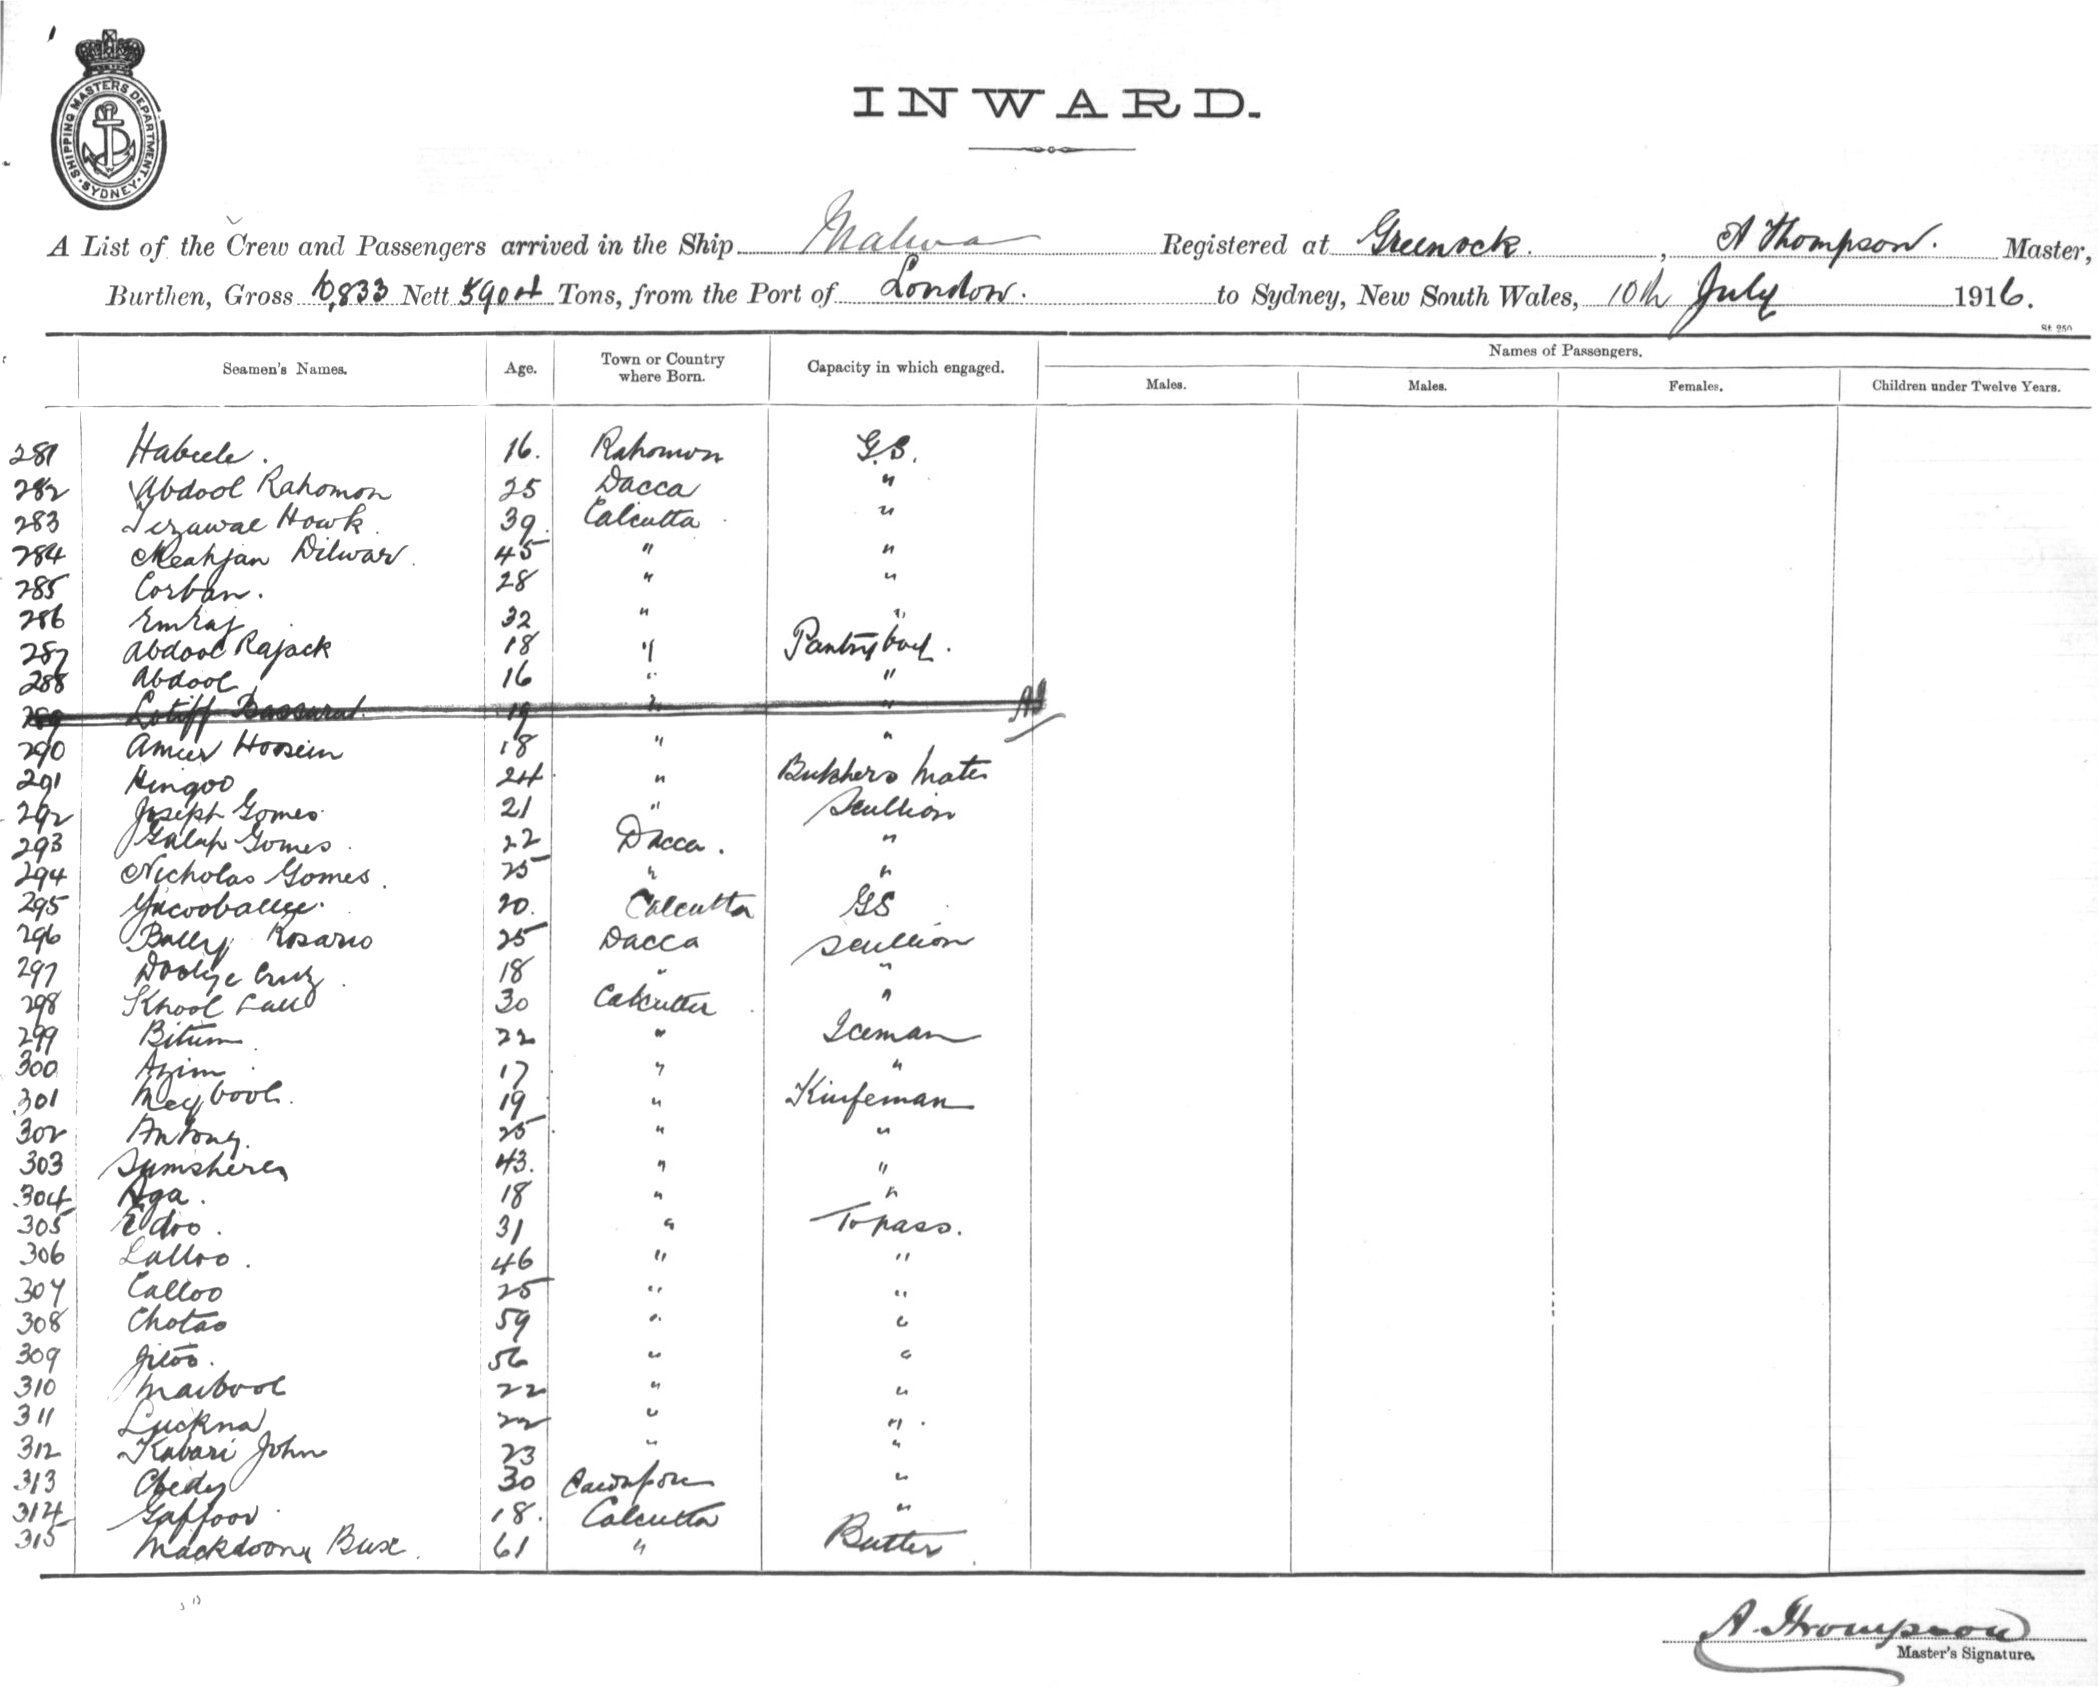 SHIPPING MASTERS DEPARTMENT · SYDNEY ·
INWARD.
A List of the Crew and Passengers arrived in the Ship Malwa Registered at Greenock. , A Thompson. Master,
Burthen, Gross 10,833 Nett 5904 Tons, from the Port of London. to Sydney, New South Wales, 10th July 1916.
St. 250
Seamen's Names. Age. Town or Country where Born. Capacity in which engaged. Names of Passengers.
Males. Males. Females. Children under Twelve Years.
281 16. Rahomon G.S.
282 Abdool Rahomon 25 Dacca "
283 Howk 39. Calcutta "
284 Meahjan Dilwar. 45 " "
285 Corban. 28 " "
286 32 " "
287 Abdool Rajack 18 " Pantryboy.
288 Abdool 16 " "
289 Lotiff Bassarut 19 " " AT
290 Ameer Hoosein 18 " "
291 Hingoo 24 " Butchers Mate
292 Joseph Gomes 21 " Scullion
293 Gomes. 22 Dacca. "
294 Nicholas Gomes. 25 " "
295 Yacooballee. 20. Calcutta GS
296 Rosario 25 Dacca Scullion
297 Cruz. 18 " "
298 Khool Lall 30 Calcutta "
299 Bitum 22 " Iceman
300 Azim 17 " "
301 19 " Knifeman
302 Antony. 25 " "
303 Sumshere 43. " "
304 Aga. 18 " "
305 Edoo. 31 " Topass.
306 Lalloo. 46 " "
307 Calloo 25 " "
308 Chotao 59 " "
309 56 " "
310 Maibool 22 " "
311 Luckna 22 " "
312 Kabari John 23 " "
313 Chedy 30 Cawnpore "
314 Gaffoor 18. Calcutta "
315 Bux. 61 " Butler
A. Thompson
Master's Signature.